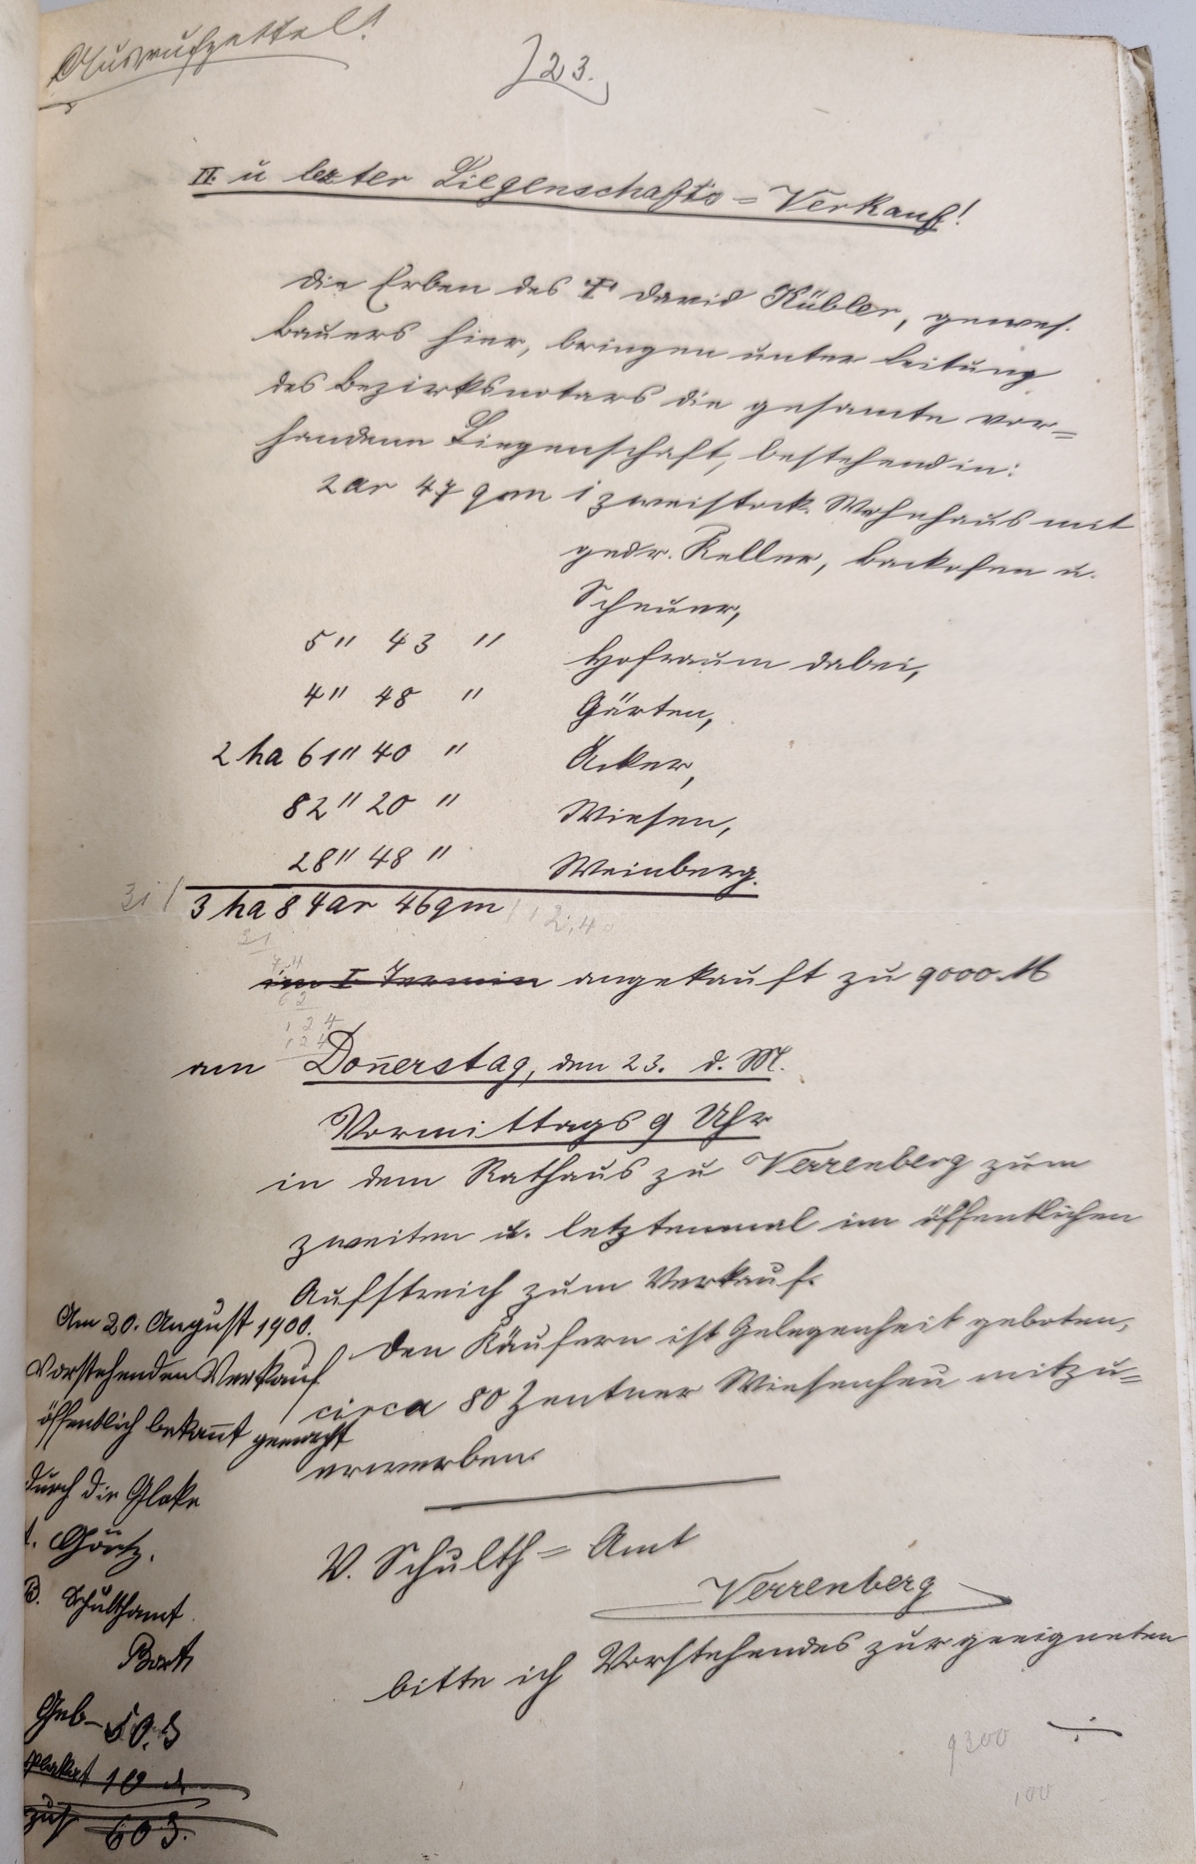 Ausrufzettel!
]23.
II. u lezter Liegenschafts=Verkauf!
Die Erben des † David Kübler, gewes.
Bauers hier, bringen unter Leitung
des Bezirksnotars die gesamte vor=
handene Liegenschaft, bestehend in:
2 ar 47 qm 1 zweistock. Wohnhaus mit
gedr. Keller, Backofen u.
Scheuer,
5 " 43 " Hofraum dabei,
4 " 48 " Gärten,
2 ha 61 " 40 " Äcker,
82 " 20 " Wiesen,
28 " 48 " Weinberg.
3 ha 84 ar 46 qm
im I. Termin angekauft zu 9000 M
am Don̄erstag, den 23. d. M.
Vormittags 9 Uhr
in dem Rathaus zu Verrenberg zum
zweiten u. letztenmal im öffentlichen
Aufstreich zum Verkauf.
Den Käufern ist Gelegenheit geboten,
circa 80 Zentner Wiesenheu mitzu=
erwerben.
V. Schulth=Amt
Verrenberg
bitte ich Vorstehendes zur geeigneten
9300
100
Am 20. August 1900.
Vorstehenden Verkauf
öffentlich bekan̄t gemacht
durch die Gloke
t. Götz.
B. Schulthamt
Geb- 50.
10
zus 60